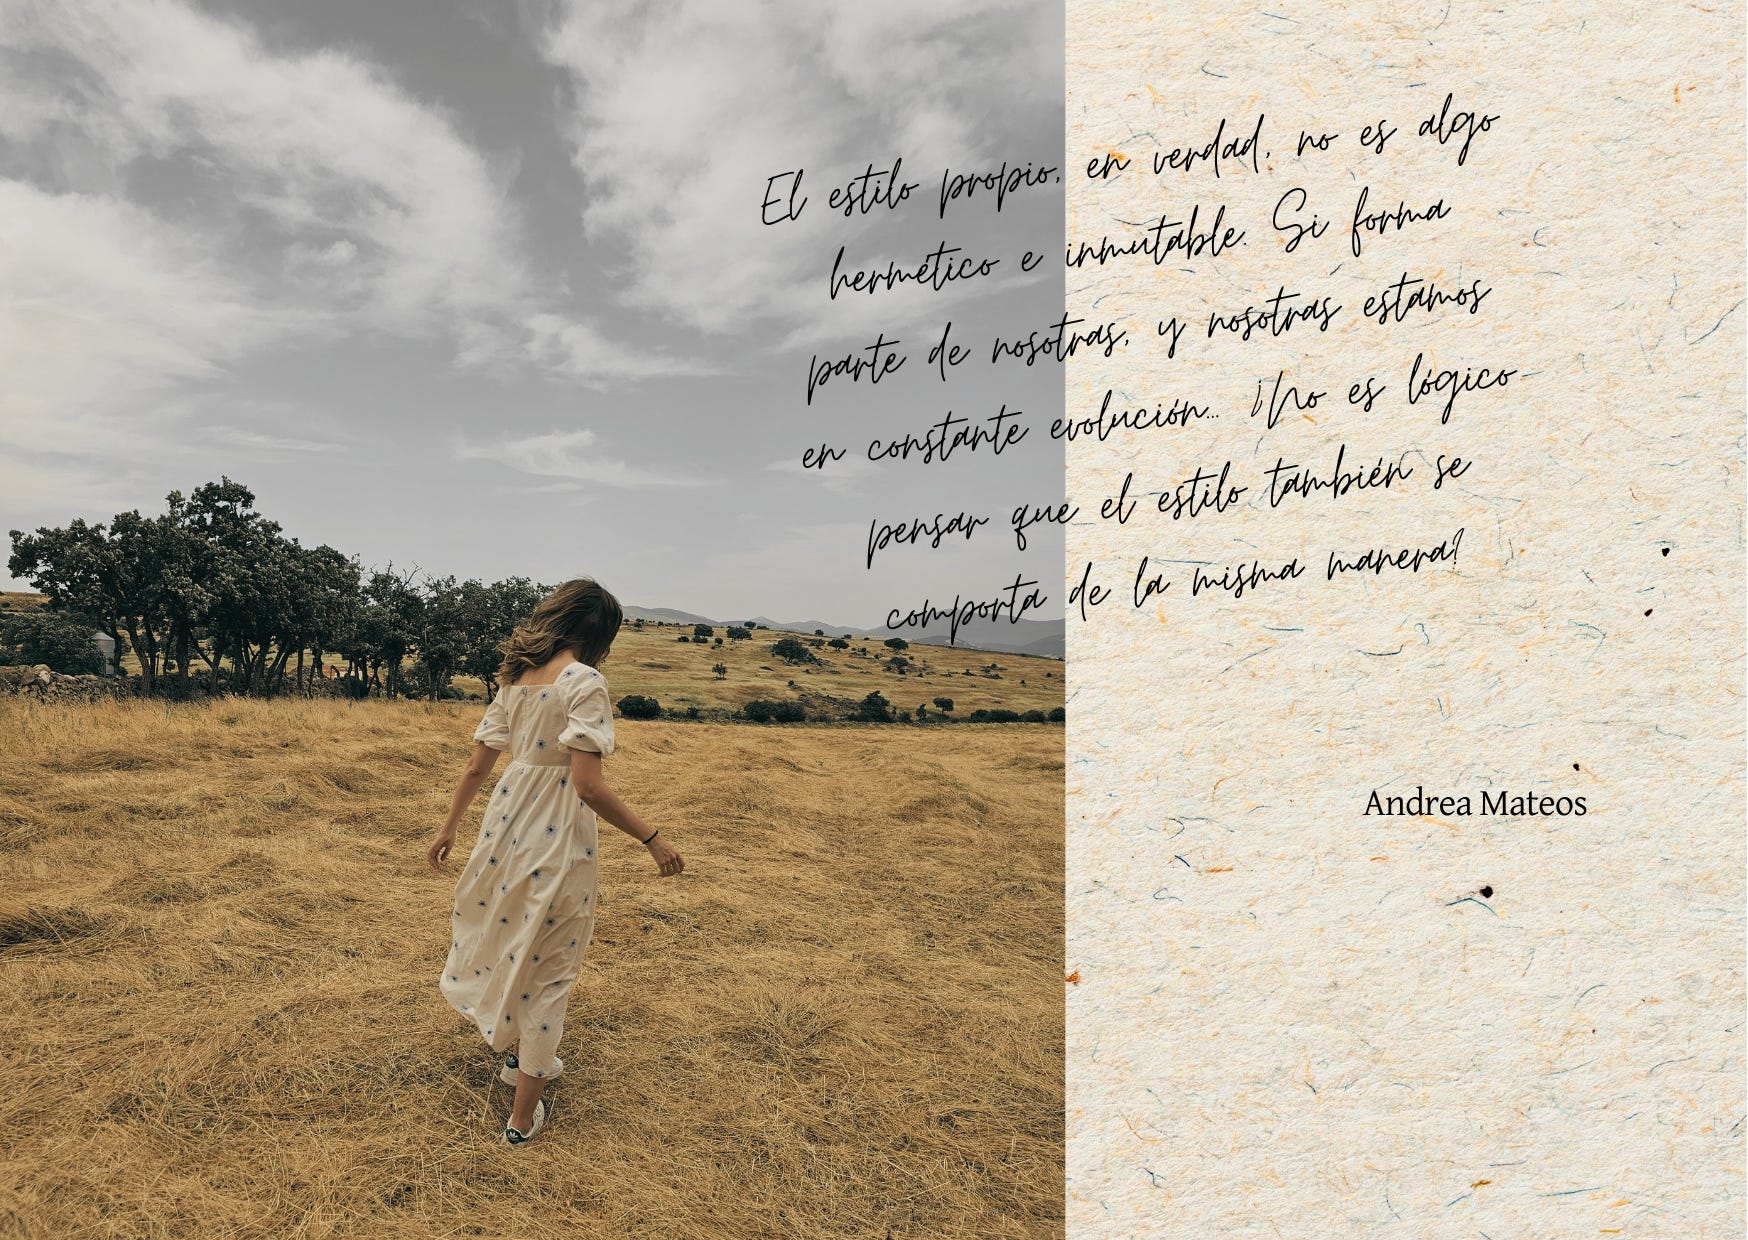 El estilo propio, en verdad, no es algo
hermético e inmutable. Si forma
parte de nosotras, y nosotras estamos
en constante evolución... ¿No es lógico
pensar que el estilo también se
comporta de la misma manera?
Andrea Mateos